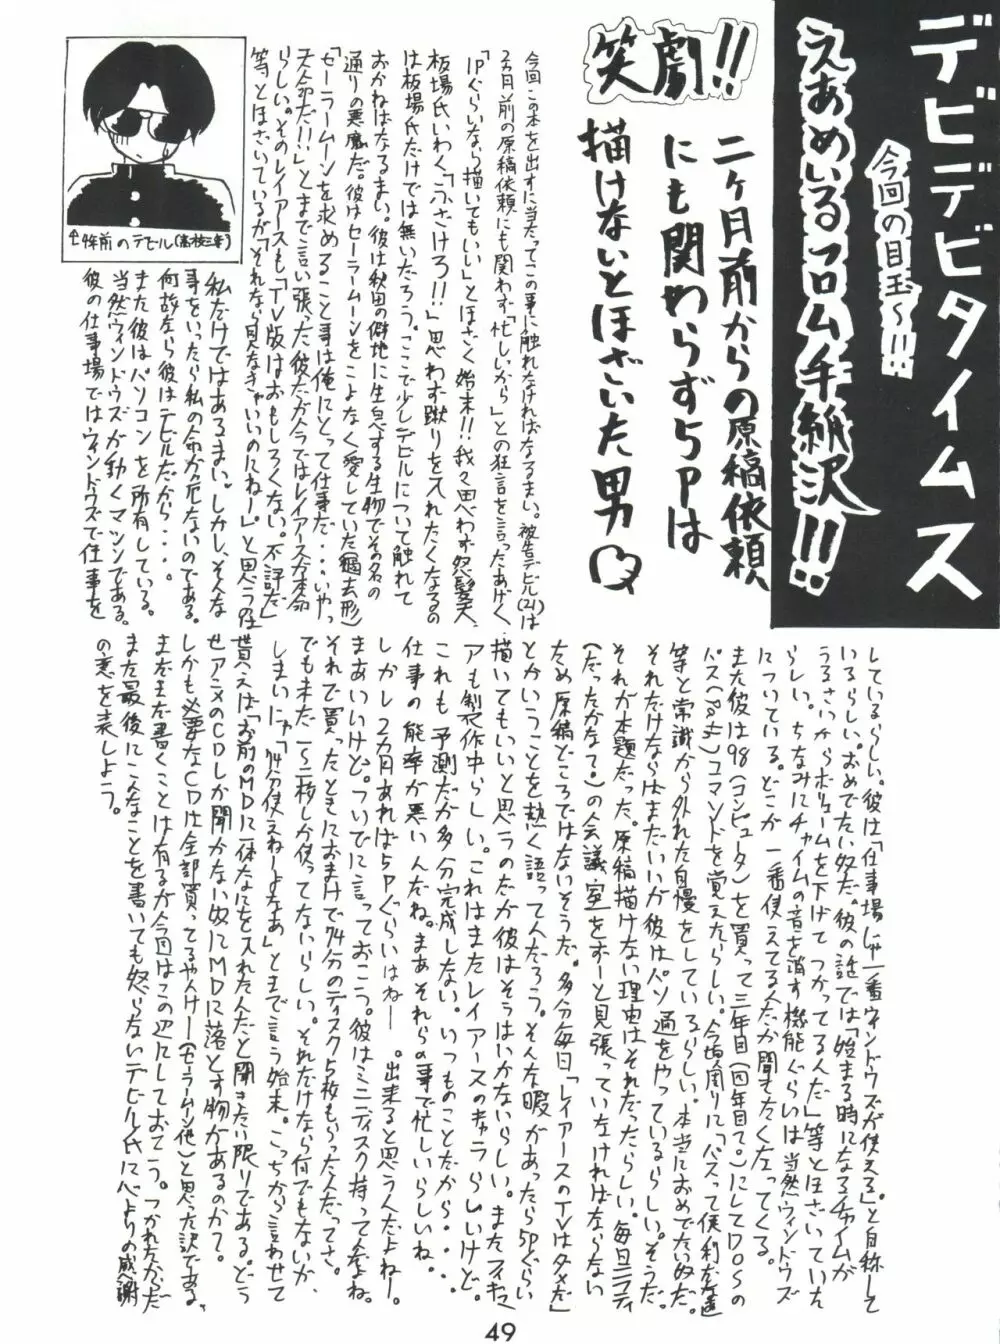 デビデビタイムス
今回の目玉～!!!
えあめいるフロム手紙沢!!
笑劇!!
二ヶ月前からの原稿依頼
にも関わらず5Pは
描けないとほざいた男
今回この本を出すに当たってこの事に触れなければなるまい。被告デビル(21)は
2ヵ月前の原稿依頼にも関わず「忙しいから」との狂言を言ったあげく
「1Pぐらいなら描いてもいい」とほざく始末!!我々思わず怒髪天
板場氏いわく「ふざけろ!!」思わず蹴りを入れたくなるの
は板場氏だけでは無いだろう。ここで少しデビルについて触れて
おかねばなるまい。彼は秋田の僻地に生息する生物でその名の
通りの悪魔だ。彼はセーラームーンをこよなく愛していた(過去形)
「セーラームーンを求めること事は俺にとって仕事だ・・・いやっ
天命だ!!」とまで言い張った彼だが今ではレイアースが本命
らしい。そのレイアースも「TV版はおもしろくない。不評だ」
等とほざいているが「それなら見なきゃいいのにねー」と思うのは
↑4年前のデビル(高校三年)
私だけではあるまい。しかし、そんな
事をいったら私の命が危ないのである。
何故なら彼はデビルだから・・・・。
また彼はパソコンを所有している。
当然ウィンドウズが動くマシンである。
彼の仕事場ではウィンドウズで仕事を
しているらしい。彼は「仕事場じゃ一番ウィンドウズが使える」と自称して
いるらしい。おめでたい奴だ。彼の話では「始まる時になるチャイムが
うるさいからボリュームを下げてつかってるんだ」等とほざいていた
らしい。ちなみにチャイムの音を消す機能ぐらいは当然ウィンドウズ
についている。どこが一番使えてる人だか聞きたくなってくる。
また彼は98(コンピュータ)を買って三年目(四年目で。)にしてDOSの
パス(Path)コマンドを覚えたらしい。今頃周りに「パスって便利だな」
等と常識から外れた自慢をしているらしい。本当におめでたい奴だ。
それだけならばまだいいが彼はパソ通をやっているらしい。そうだ。
それが本題だった。原稿描けない理由はそれだったらしい。毎日ニフティ
(だったかなて。)の会議室をずーと見張っていなければならない
ため原稿どころではないそうだ。多分毎日「レイアースのTVはダメだ」
とかいうことを熱く語ってんだろう。そんな暇があったら5Pぐらい
描いてもいいと思うのだが彼はそうはいかないらしい。またフィギュ
アも製作中らしい。これはまたレイアースのキャラらしいけど。
これも予測だが多分完成しない。いつものことだから・・・
仕事の能率が悪いんだね。まあそれらの事で忙しいらしいね。
しかし2ヵ月あれば5Pぐらいはねー。出来ると思うんだよねー。
まあいいけど。ついでに言っておこう。彼はミニディスク持ってんだよね。
それで買ったときにおまけで74分のディスク5枚もらったんだってさ。
でもまだ1〜2枚しか使ってないらしい。それだけなら何でもないが、
しまいにゃ「74分使えねーよなあ」とまで言う始末。こっちから言わせて
貰えば「お前のMDに一体なにを入れたんだと聞きたい限りである。どう
せアニメのCDしか聞かない奴にMDに落とす物があるのか？
しかも必要なCDは全部買ってるやんけー(セーラームーン他)と思った訳である。
まだまだ書くことは有るが今回はこの辺にしておこう。つかれたから
また最後にこんなことを書いても怒らないデビル氏にべよりの感謝
の意を表しよう。
49